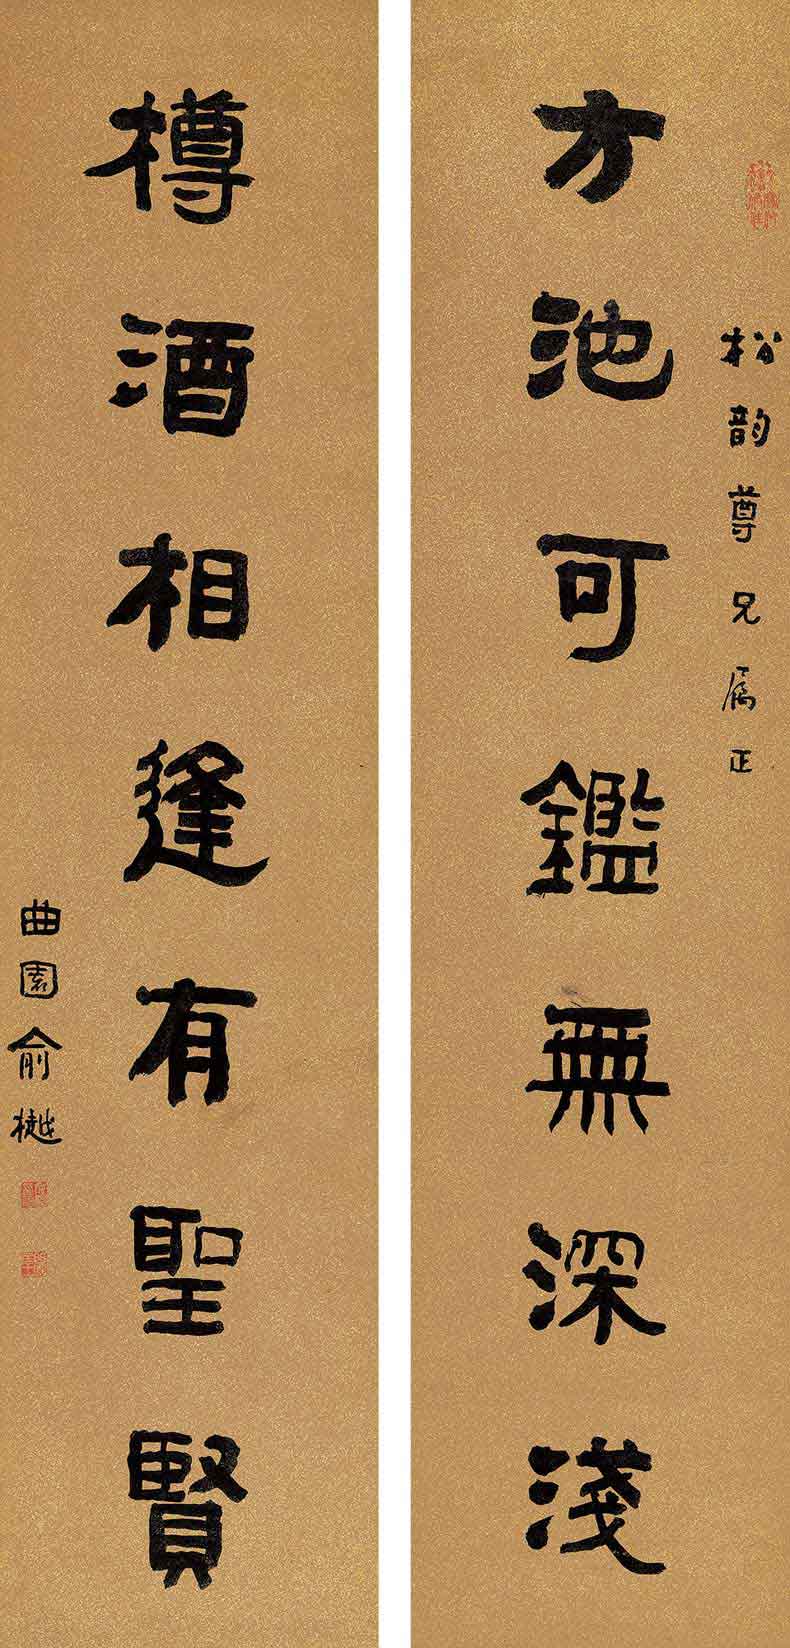 松韵尊兄属正
方池可鑑無深淺
樽酒相逢有聖賢
曲園俞樾